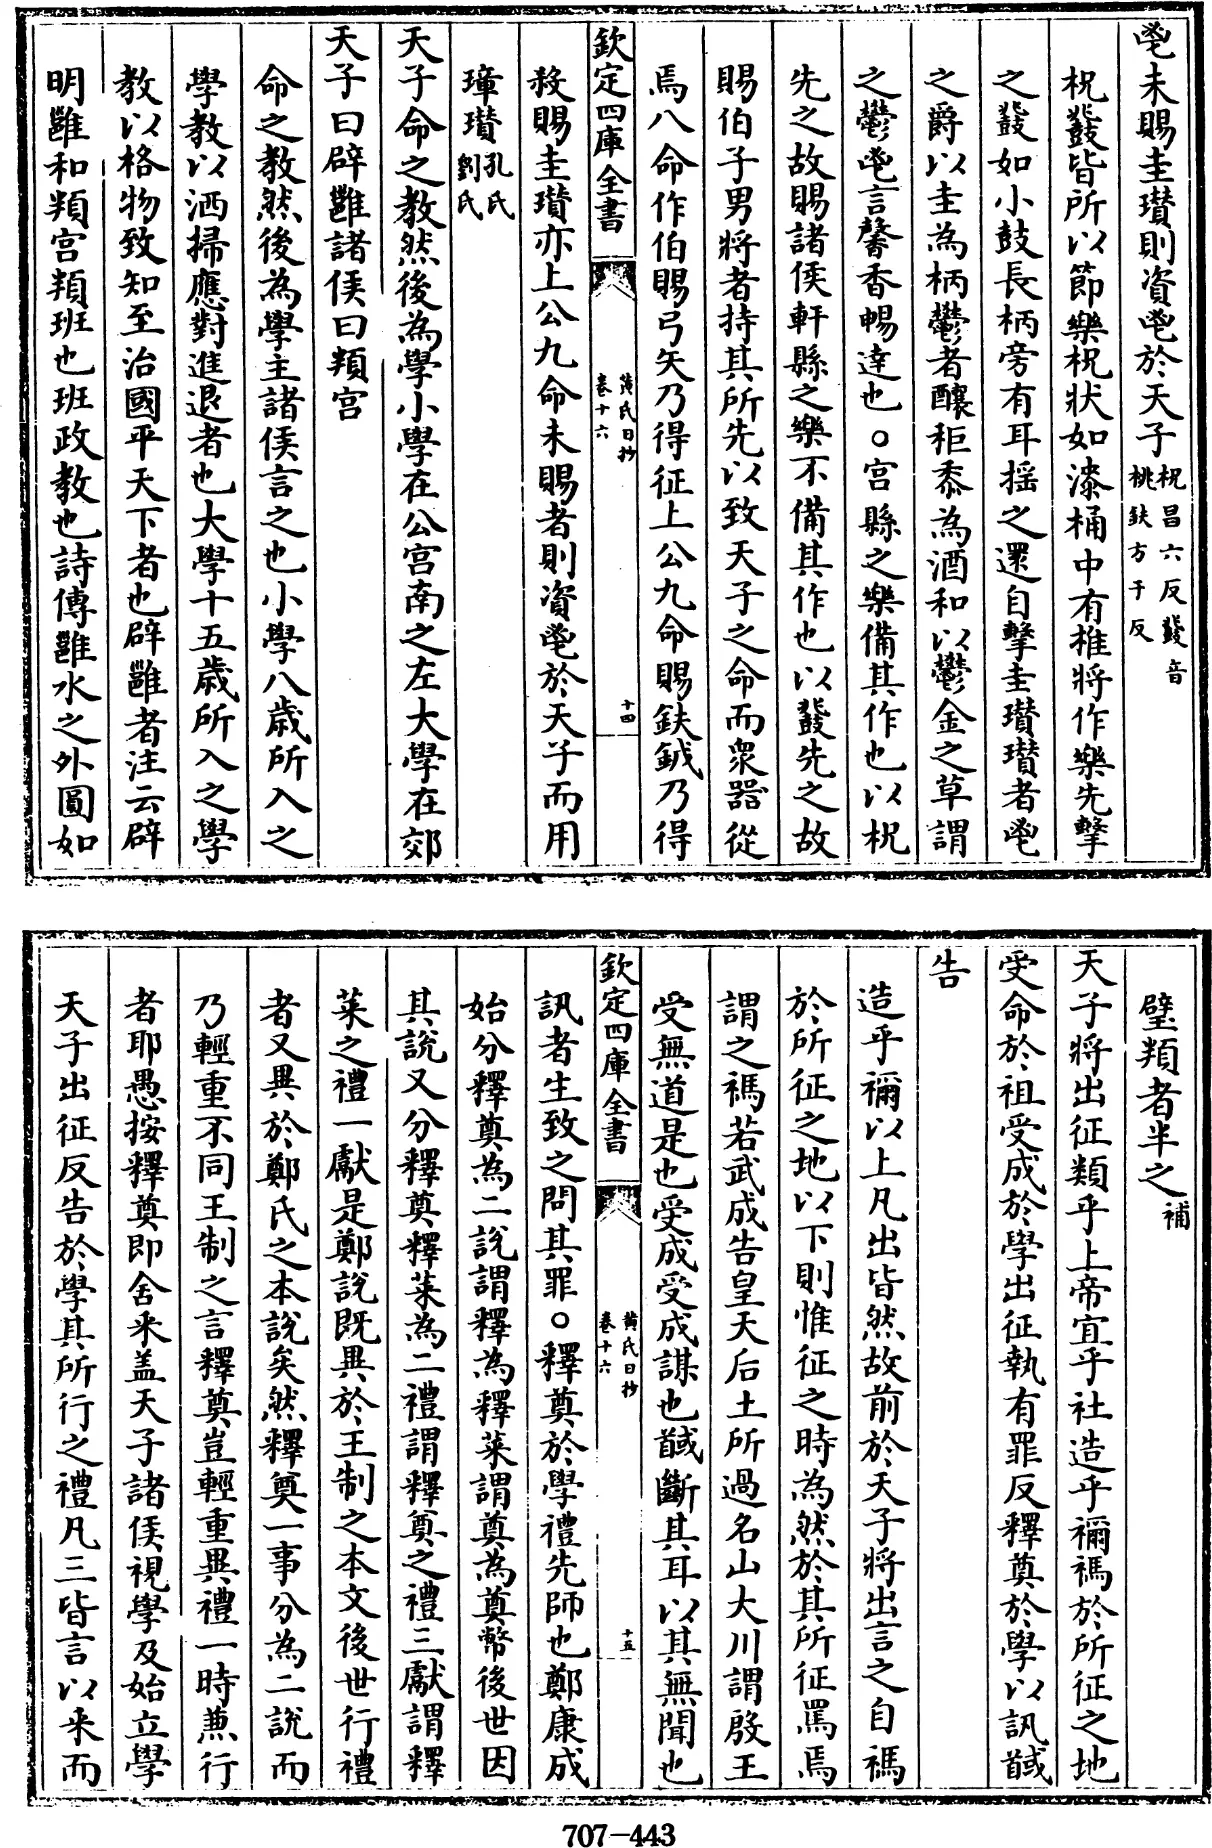 鬯未賜圭瓉則資鬯於天子柷昌六反鼗音
桃鈇方于反
柷鼗皆所以節樂柷狀如漆桶中有椎將作樂先擊
之鼗如小鼓長柄旁有耳揺之還自擊圭瓉瓉者鬯
之爵以圭為柄鬱者釀秬黍為酒和以鬱金之草謂
之鬱鬯言馨香暢達也○宫縣之樂備其作也以柷
先之故賜諸侯軒縣之樂不備其作也以鼗先之故
賜伯子男將者持其所先以致天子之命而衆器從
焉八命作伯賜弓矢乃得征上公九命賜鈇鉞乃得
欽定四庫全書
黄氏日抄
卷十六
十四
殺賜圭瓉亦上公九命未賜者則資鬯於天子而用
璋瓉孔氏
劉氏
天子命之教然後為學小學在公宫南之左大學在郊
天子曰辟雝諸侯曰頖宫
命之教然後為學主諸侯言之也小學八歳所入之
學教以洒掃應對進退者也大學十五歳所入之學
教以格物致知至治國平天下者也辟雝者注云辟
明雝和頖宫頖班也班政教也詩傳雝水之外圓如
璧頖者半之補
天子將出征類乎上帝宜乎社造乎禰禡於所征之地
受命於祖受成於學出征執有罪反釋奠於學以訊馘
告
造乎禰以上凡出皆然故前於天子將出言之自禡
於所征之地以下則惟征之時為然於其所征罵焉
謂之禡若武成告皇天后土所過名山大川謂殷王
受無道是也受成受成謀也馘斷其耳以其無聞也
欽定四庫全書
黄氏日抄
卷十六
十五
訊者生致之問其罪○釋奠於學禮先師也鄭康成
始分釋奠為二說謂釋為釋菜謂奠為奠幣後世因
其說又分釋奠釋菜為二禮謂釋奠之禮三獻謂釋
菜之禮一獻是鄭說既異於王制之本文後世行禮
者又異於鄭氏之本說矣然釋奠一事分為二說而
乃輕重不同王制之言釋奠豈輕重異禮一時兼行
者耶愚按釋奠即舍采盖天子諸侯視學及始立學
天子出征反告於學其所行之禮凡三皆言以釆而
707-443